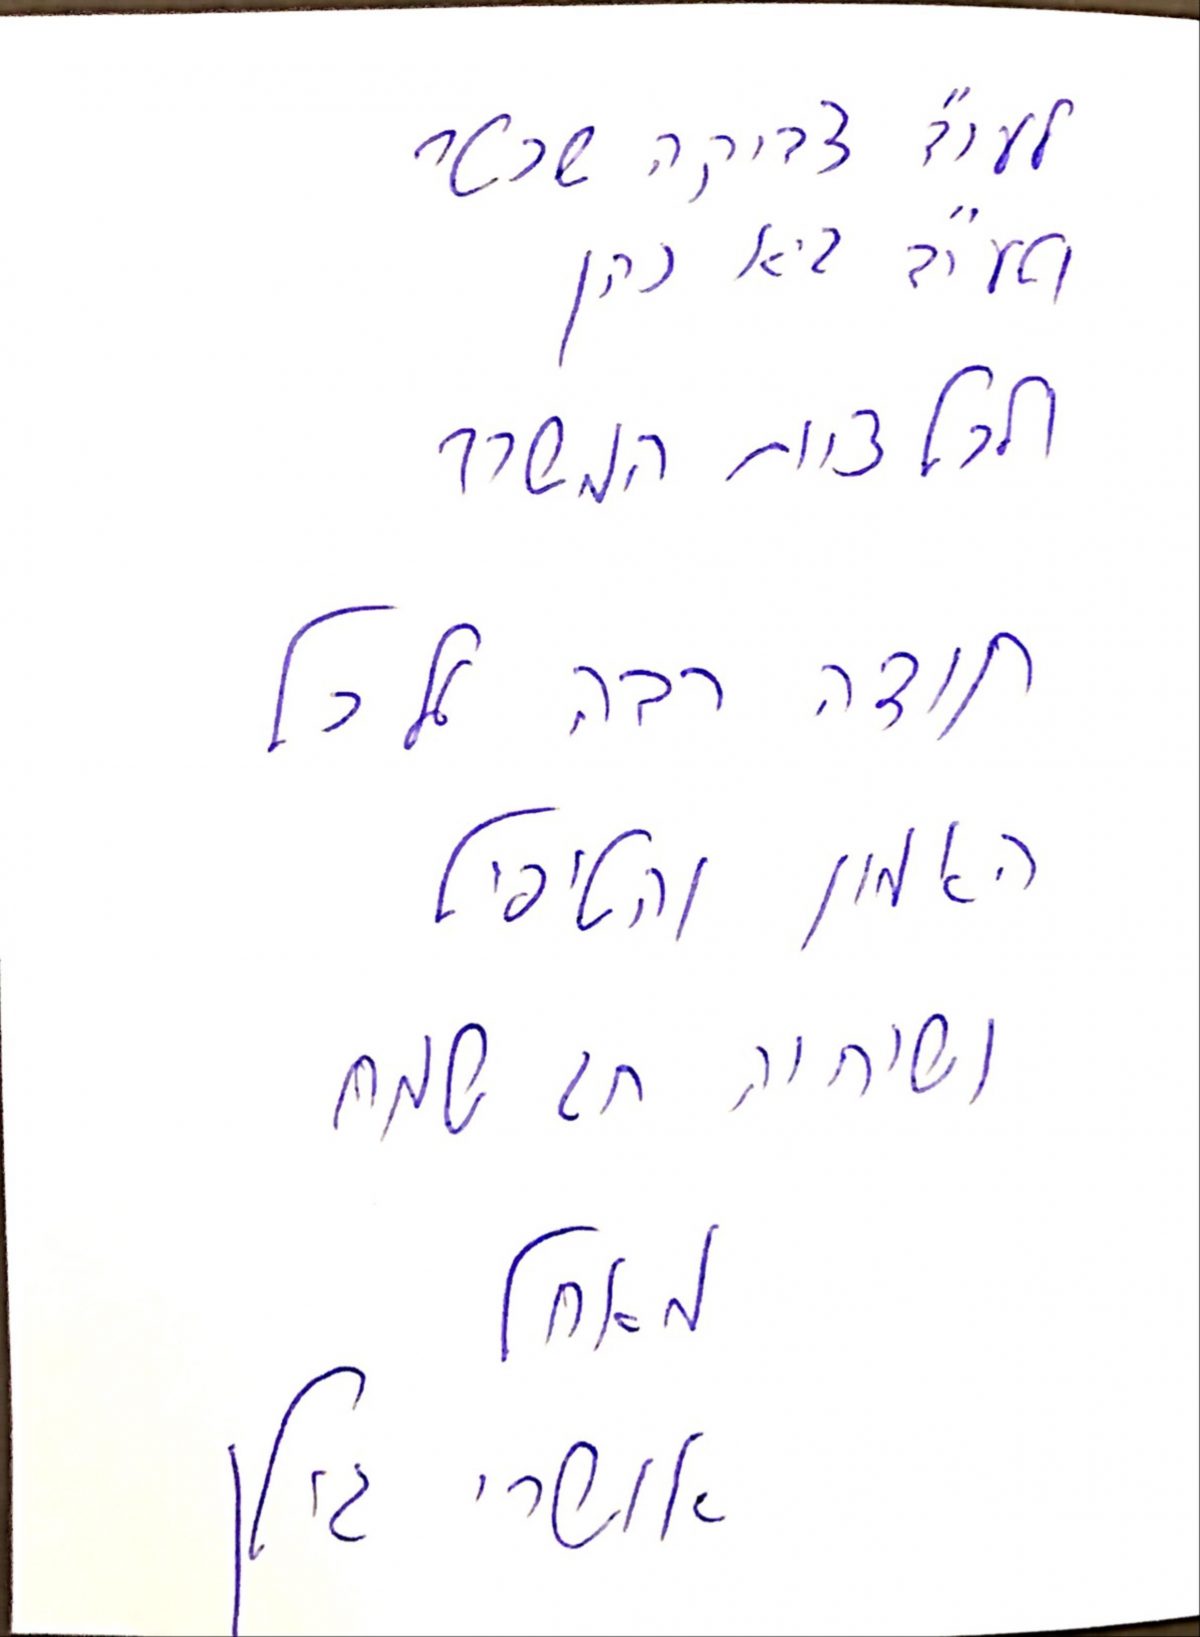 לעו"ד צביקה שכטר
ולעו"ד גיא כהן
ולכל צוות המשרד
תודה רבה על כל
האמון והטיפול
ושיהיה חג שמח
מאחל
אושרי גילן